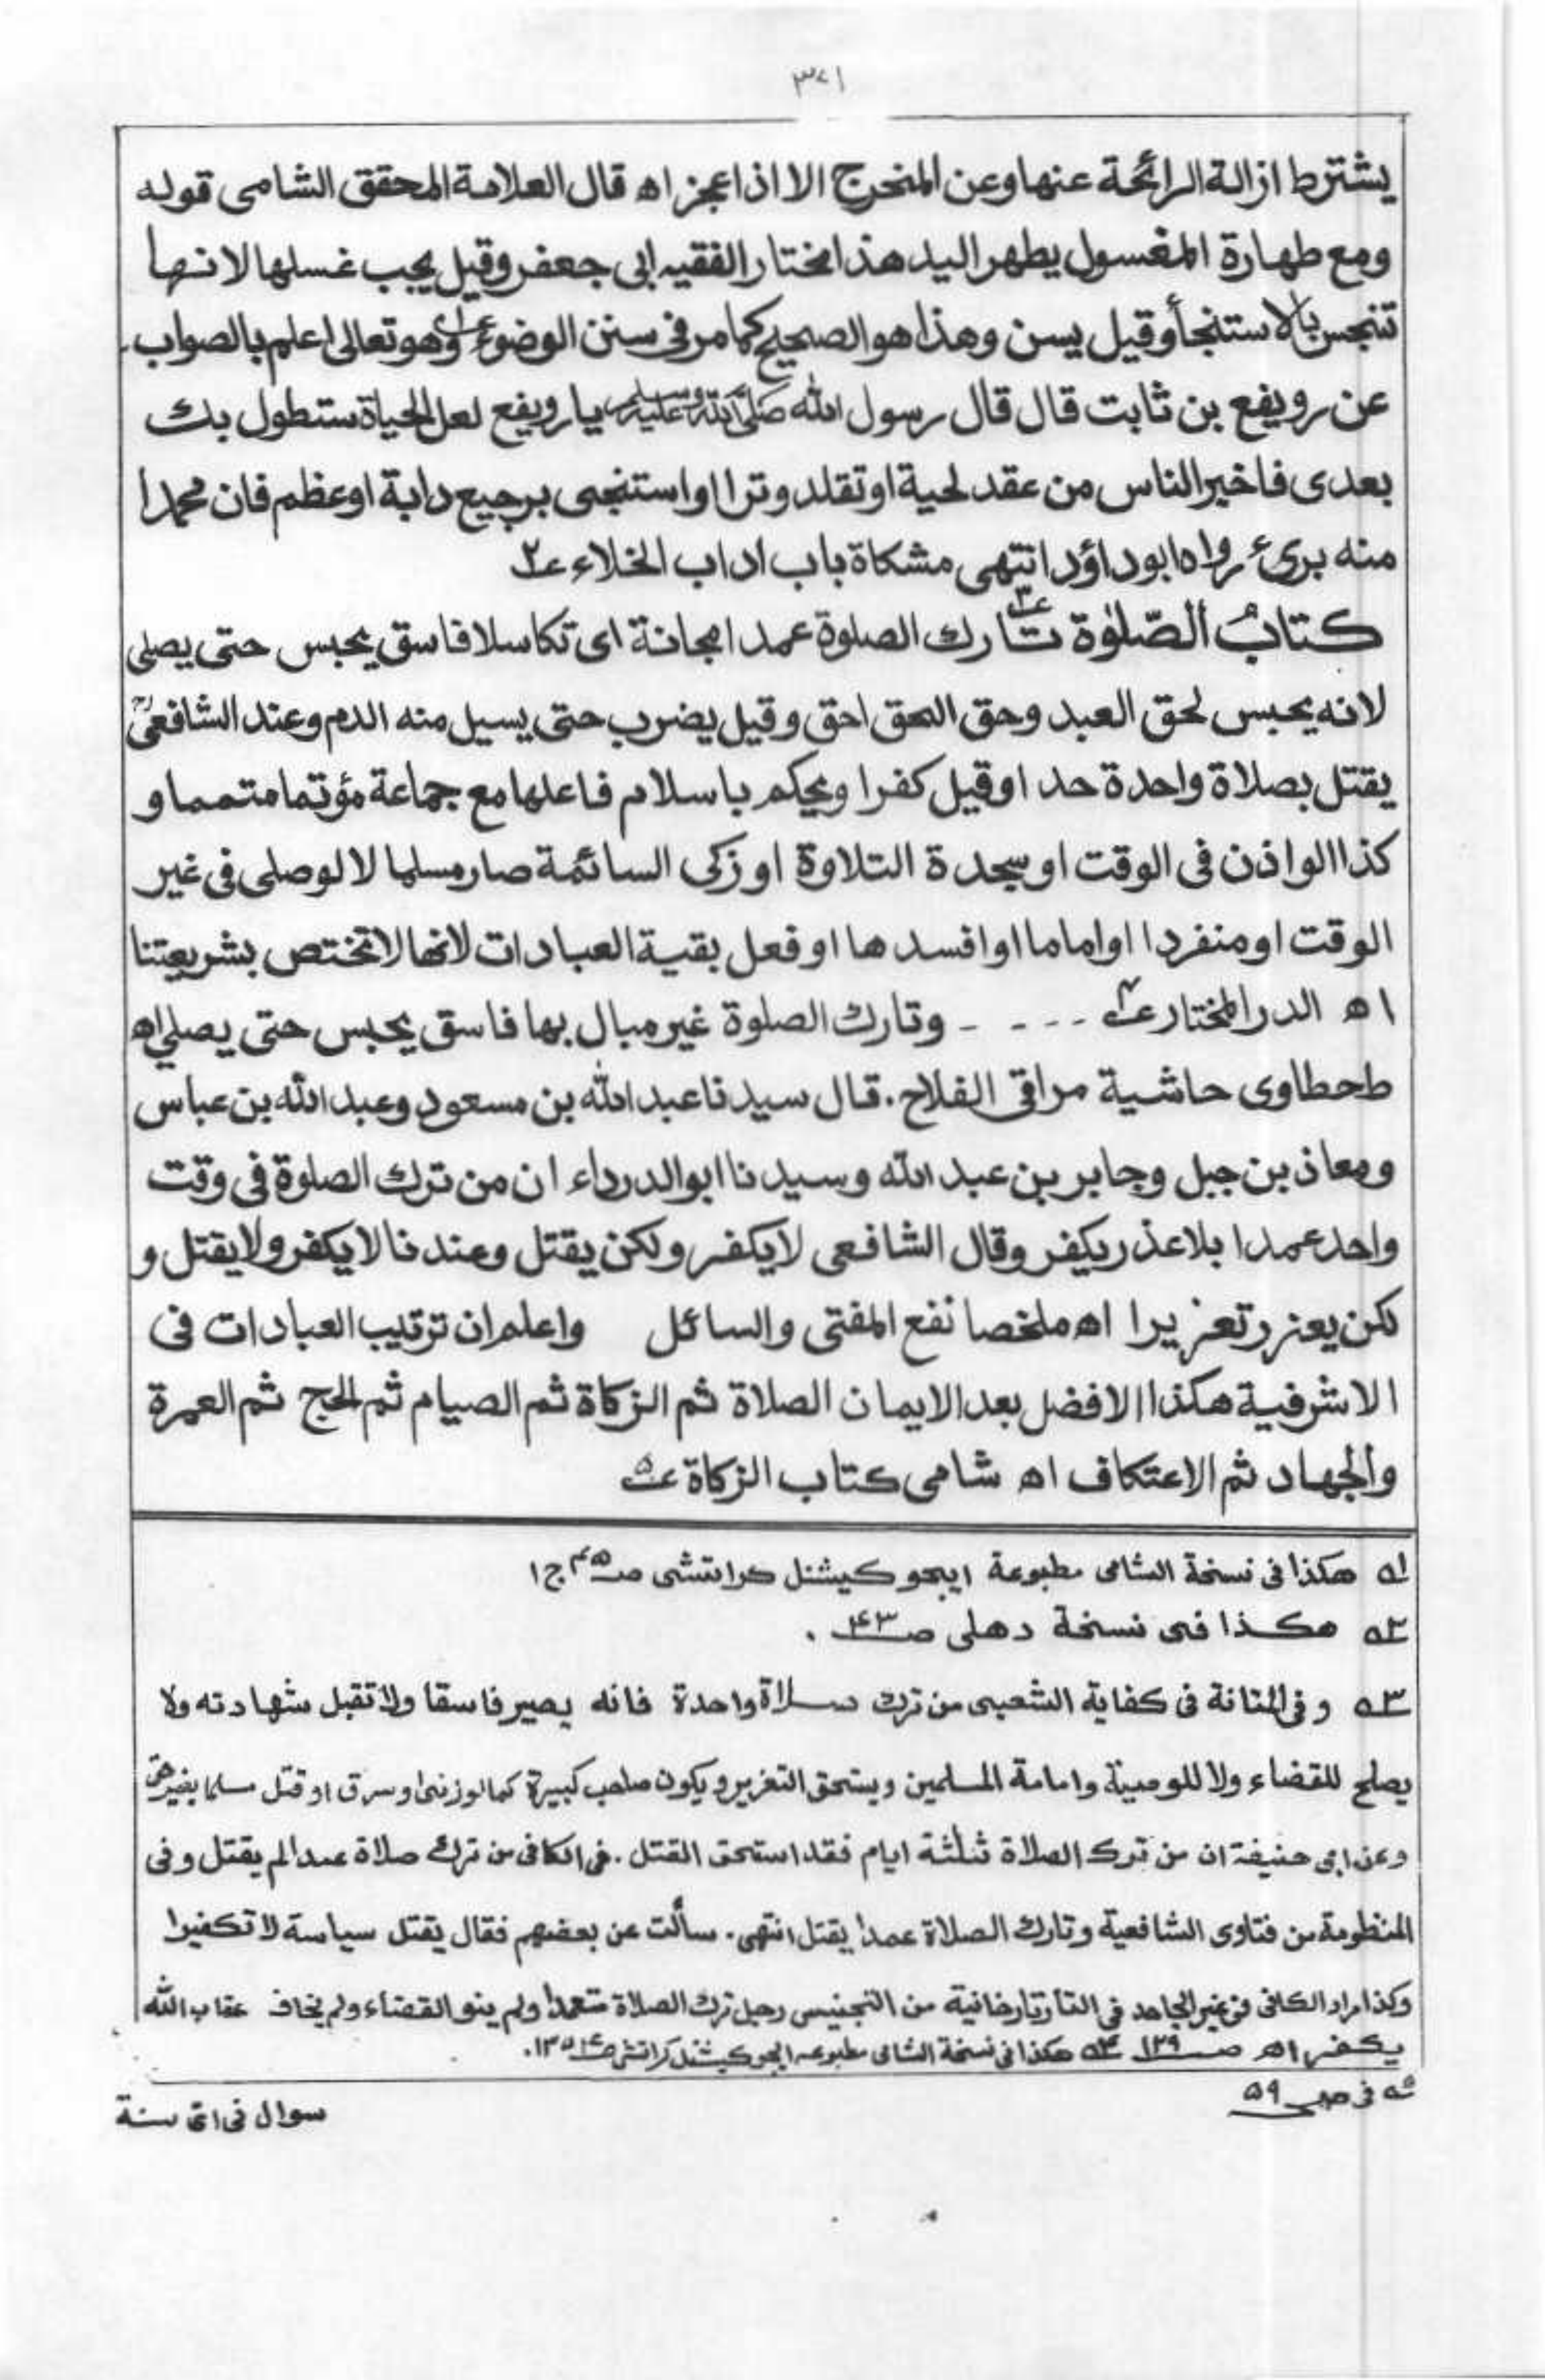 ٣٧١
يشترط ازالة الرائحة عنها وعن المخرج الا اذا عجز اه قال العلامة المحقق الشامى قوله
ومع طهارة المغسول يطهر اليد هذا مختار الفقيه ابى جعفر وقيل يجب غسلها لانها
تنجس بالاستنجأ وقيل يسن وهذا هو الصحيح كما مر فى سنن الوضوء عـ١ وهو تعالى اعلم بالصواب۔
عن رويفع بن ثابت قال قال رسول الله صلى الله عليه وسلم يا رويفع لعل الحياة ستطول بك
بعدى فاخبر الناس من عقد لحية او تقلد وترا او استنجى برجيع دابة او عظم فان محمدا
منه برىء رواه ابوداؤد انتهى مشكاة باب اداب الخلاء عـ٢
كتابُ الصّلوٰة تـٰارك عـ٣ الصلوة عمدا مجانة اى تكاسلا فاسق يحبس حتى يصلى
لانه يحبس لحق العبد وحق الحق احق وقيل يضرب حتى يسيل منه الدم وعند الشافعىؒ
يقتل بصلاة واحدة حدا وقيل كفرا ويحكم باسلام فاعلها مع جماعة مؤتما متمما و
كذا الو اذن فى الوقت او سجدة التلاوة او زكى السائمة صار مسلما لا لو صلى فى غير
الوقت او منفردا او اماما او افسدها او فعل بقية العبادات لانها لا تختص بشريعتنا
اه الدر المختار عـ٤ - - - - وتارك الصلوة غير مبال بها فاسق يحبس حتى يصلي اه
طحطاوى حاشية مراقى الفلاح. قال سيدنا عبد الله بن مسعود وعبد الله بن عباس
ومعاذ بن جبل وجابر بن عبد الله وسيدنا ابو الدرداء ان من ترك الصلوة فى وقت
واحد عمدا بلا عذر يكفر وقال الشافعى لا يكفر ولكن يقتل وعندنا لا يكفر ولا يقتل و
لكن يعزر تعزيرا اه ملخصا نفع المفتى والسائل واعلم ان ترتيب العبادات فى
الاشرفية هكذا الافضل بعد الايمان الصلاة ثم الزكاة ثم الصيام ثم الحج ثم العمرة
والجهاد ثم الاعتكاف اه شامى كتاب الزكاة عـ٥
١ـه هكذا فى نسخة الشامى مطبوعة ايجوكيشنل كراتشى صـ ج١
٢ـه هكذا فى نسخة دهلى صـ٤٣.
٣ـه وفى المتانة فى كفاية الشعبى من ترك صلاة واحدة فانه يصير فاسقا ولا تقبل شهادته ولا
يصلح للقضاء ولا للوصية وامامة المسلمين ويستحق التعزير ويكون صاحب كبيرة كما لو زنى او سرق او قتل مسلما بغير حق
وعن ابى حنيفة ان من ترك الصلاة ثلثة ايام فقد استحق القتل. فى الكافى من ترك صلاة عمدا لم يقتل وفى
المنظومة من فتاوى الشافعية وتارك الصلاة عمدا يقتل انتهى. سألت عن بعضهم فقال يقتل سياسة لا تكفيرا
وكذا مراد الكافى فى غير الجاحد فى التاتارخانية من التجنيس رجل ترك الصلاة متعمدا ولم ينو القضاء ولم يخاف عقاب الله
يكفر اه صـ١٣٩ ٤ـه هكذا فى نسخة الشامى مطبوعه ايجوكيشنل كراتش
٥ـه فى صـ٥٩
سوال فى